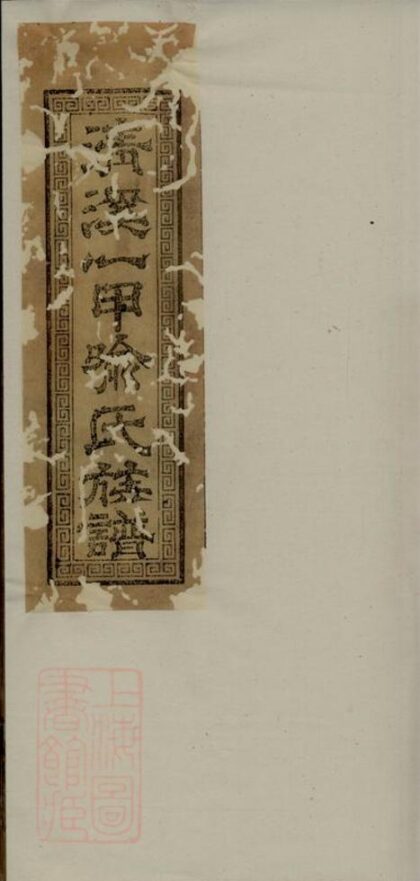 溪一甲喻氏族譜
上海圖
書館藏